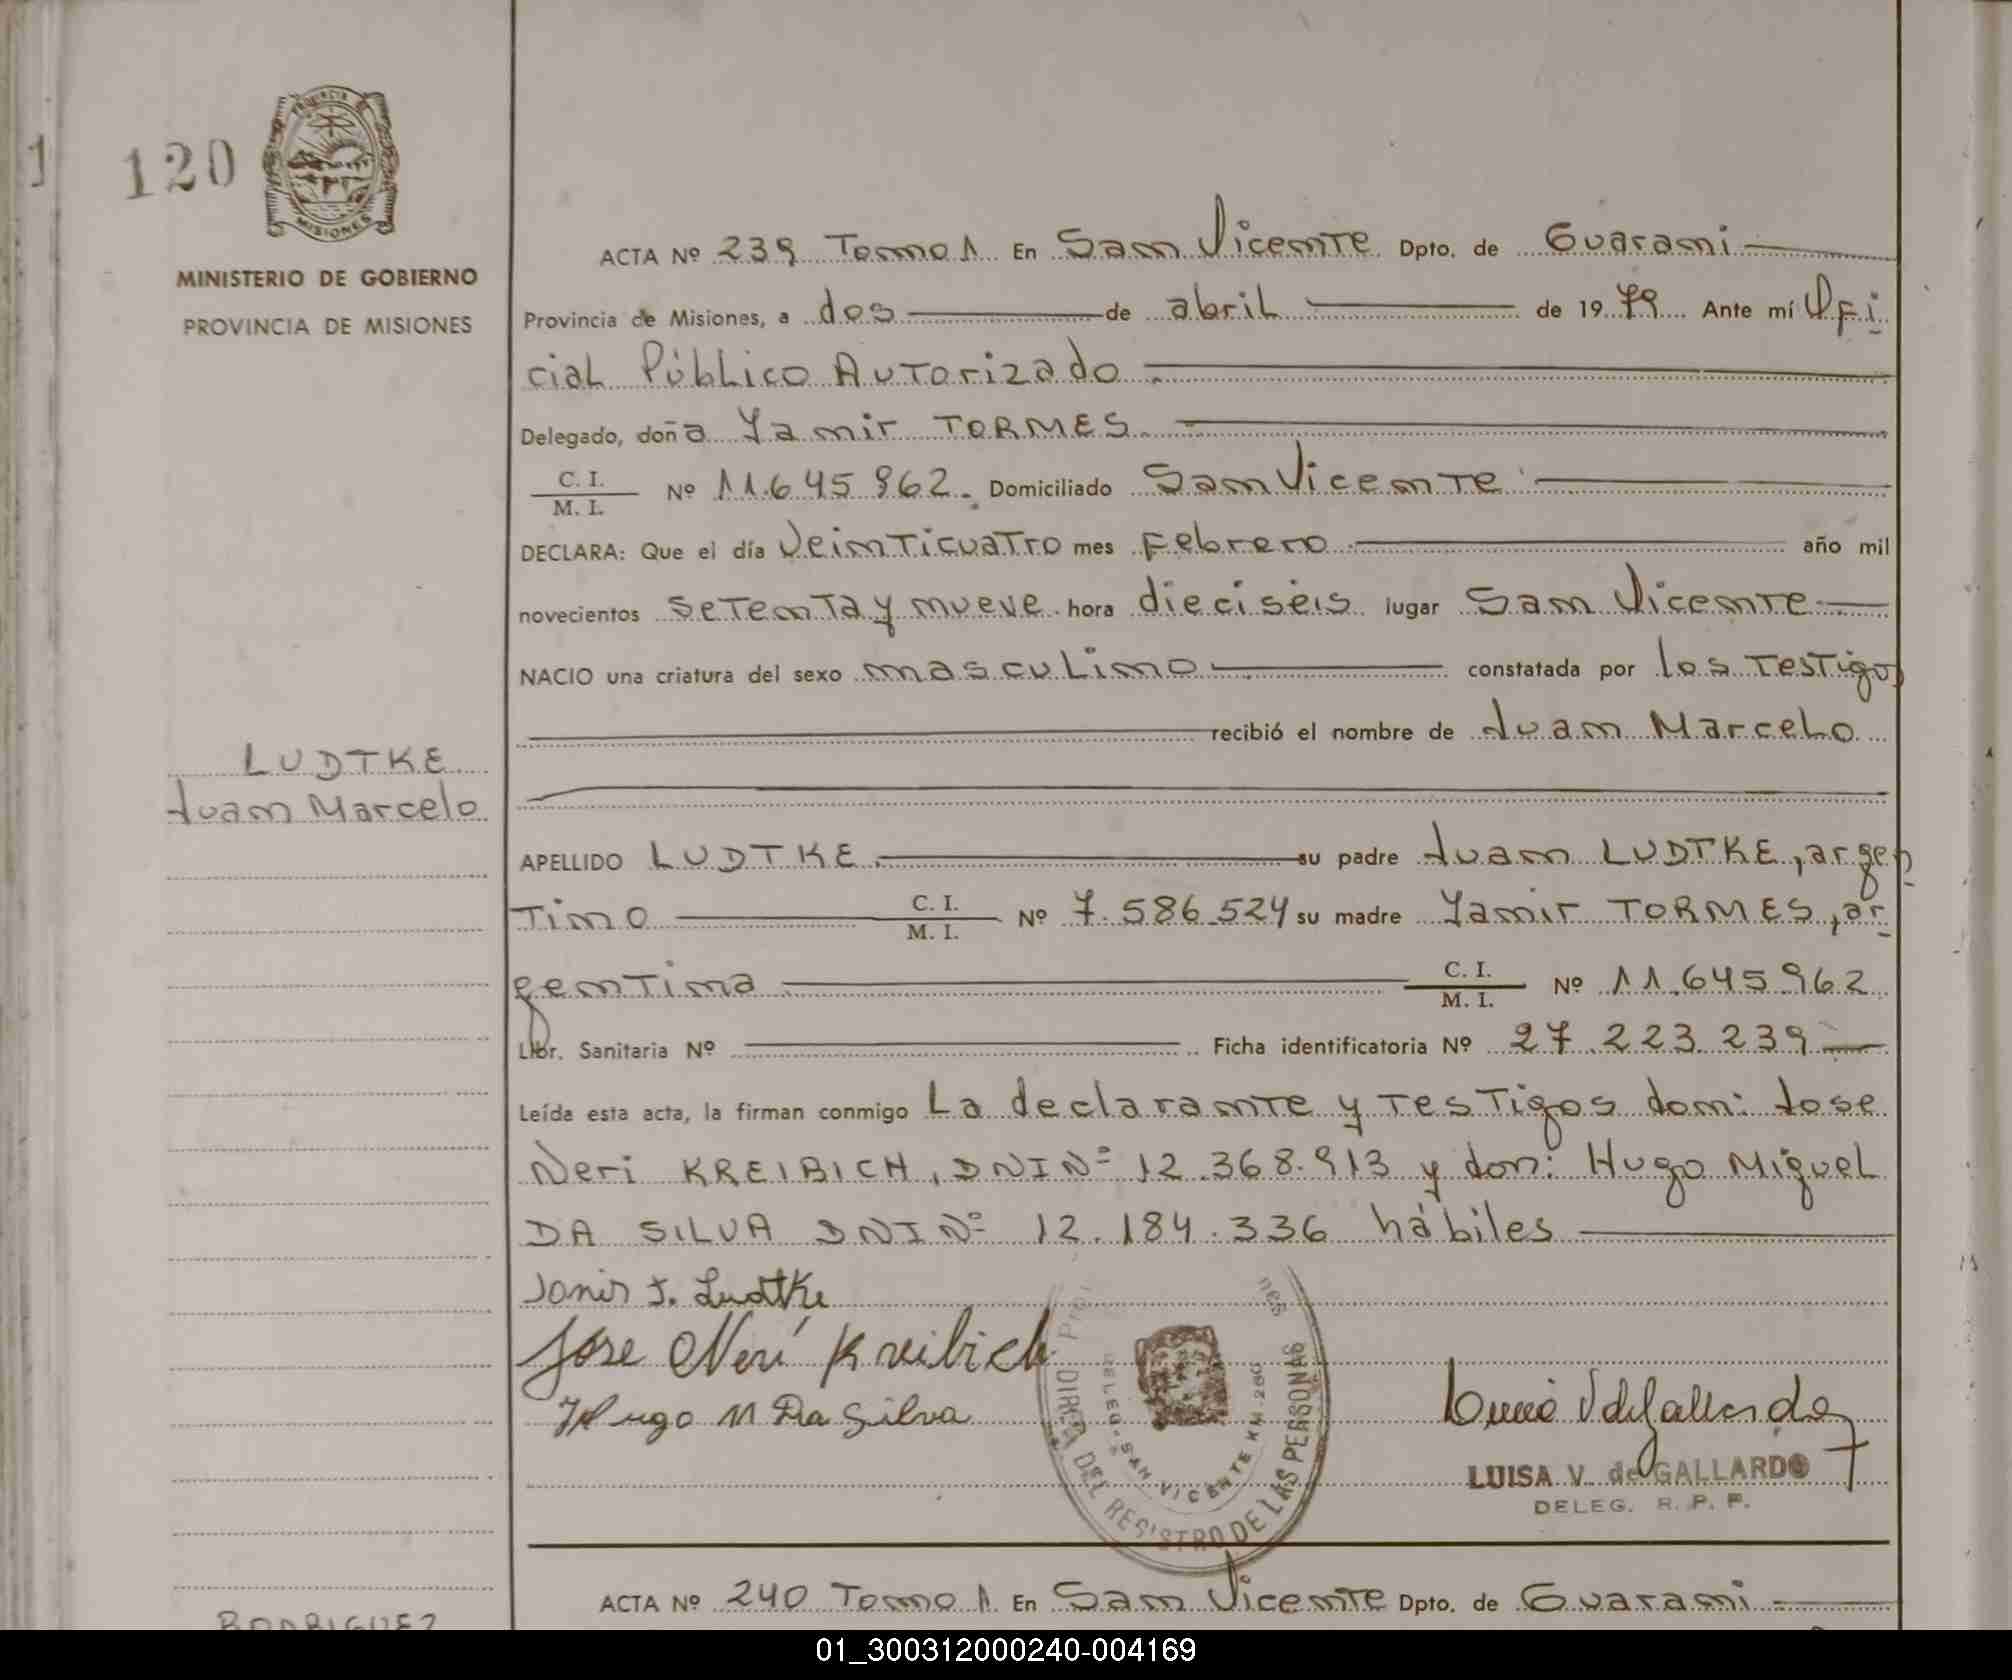 1
120
PROVINCIA DE
MISIONES
MINISTERIO DE GOBIERNO
PROVINCIA DE MISIONES
ACTA Nº 239 Tomo 1 En San Vicente Dpto. de Guaraní
Provincia de Misiones, a dos de abril de 1979 Ante mí Ofi
cial Público Autorizado
Delegado, doña Yamir TORMES.
C. I.
M. I. Nº 11.645962. Domiciliado San Vicente
DECLARA: Que el día veinticuatro mes Febrero año mil
novecientos setenta y nueve hora dieciséis lugar San Vicente
NACIO una criatura del sexo masculino constatada por los testigos
recibió el nombre de Juan Marcelo
LUDTKE
Juan Marcelo
APELLIDO LUDTKE su padre Juan LUDTKE, argen
tino C. I. M. I. Nº 7.586.524 su madre Yamir TORMES, ar
gentina C. I. M. I. Nº 11.645962
Libr. Sanitaria Nº Ficha identificatoria Nº 27.223.239
Leída esta acta, la firman conmigo La declarante y testigos don: Jose
Neri KREIBICH, DNI Nº 12.368.913 y don: Hugo Miguel
DA SILVA DNI Nº 12.184.336 hábiles
Janir t. Ludtke
Jose Neri Kreibich
Hugo M Da Silva
DIREC. DEL REGISTRO DE LAS PERSONAS
SAN VICENTE KM. 260
LUISA V. de GALLARDO
DELEG. R. P. P.
ACTA Nº 240 Tomo 1 En San Vicente Dpto. de Guaraní
RODRIGUEZ
01_300312000240-004169